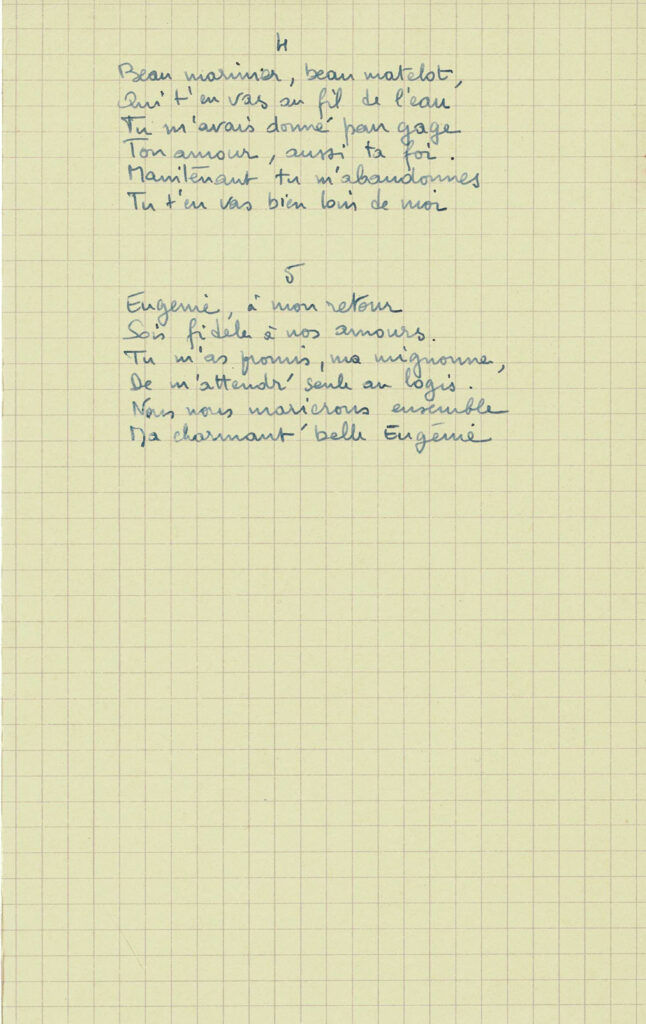 4
Beau marinier, beau matelot,
Qui t'en vas au fil de l'eau
Tu m'avais donné pour gage
Ton amour, aussi ta foi.
Maintenant tu m'abandonnes
Tu t'en vas bien loin de moi
5
Eugénie, à mon retour
Sois fidèle à nos amours.
Tu m'as promis, ma mignonne,
De m'attendr' seule au logis.
Nous nous marierons ensemble
Ma charmant' belle Eugénie